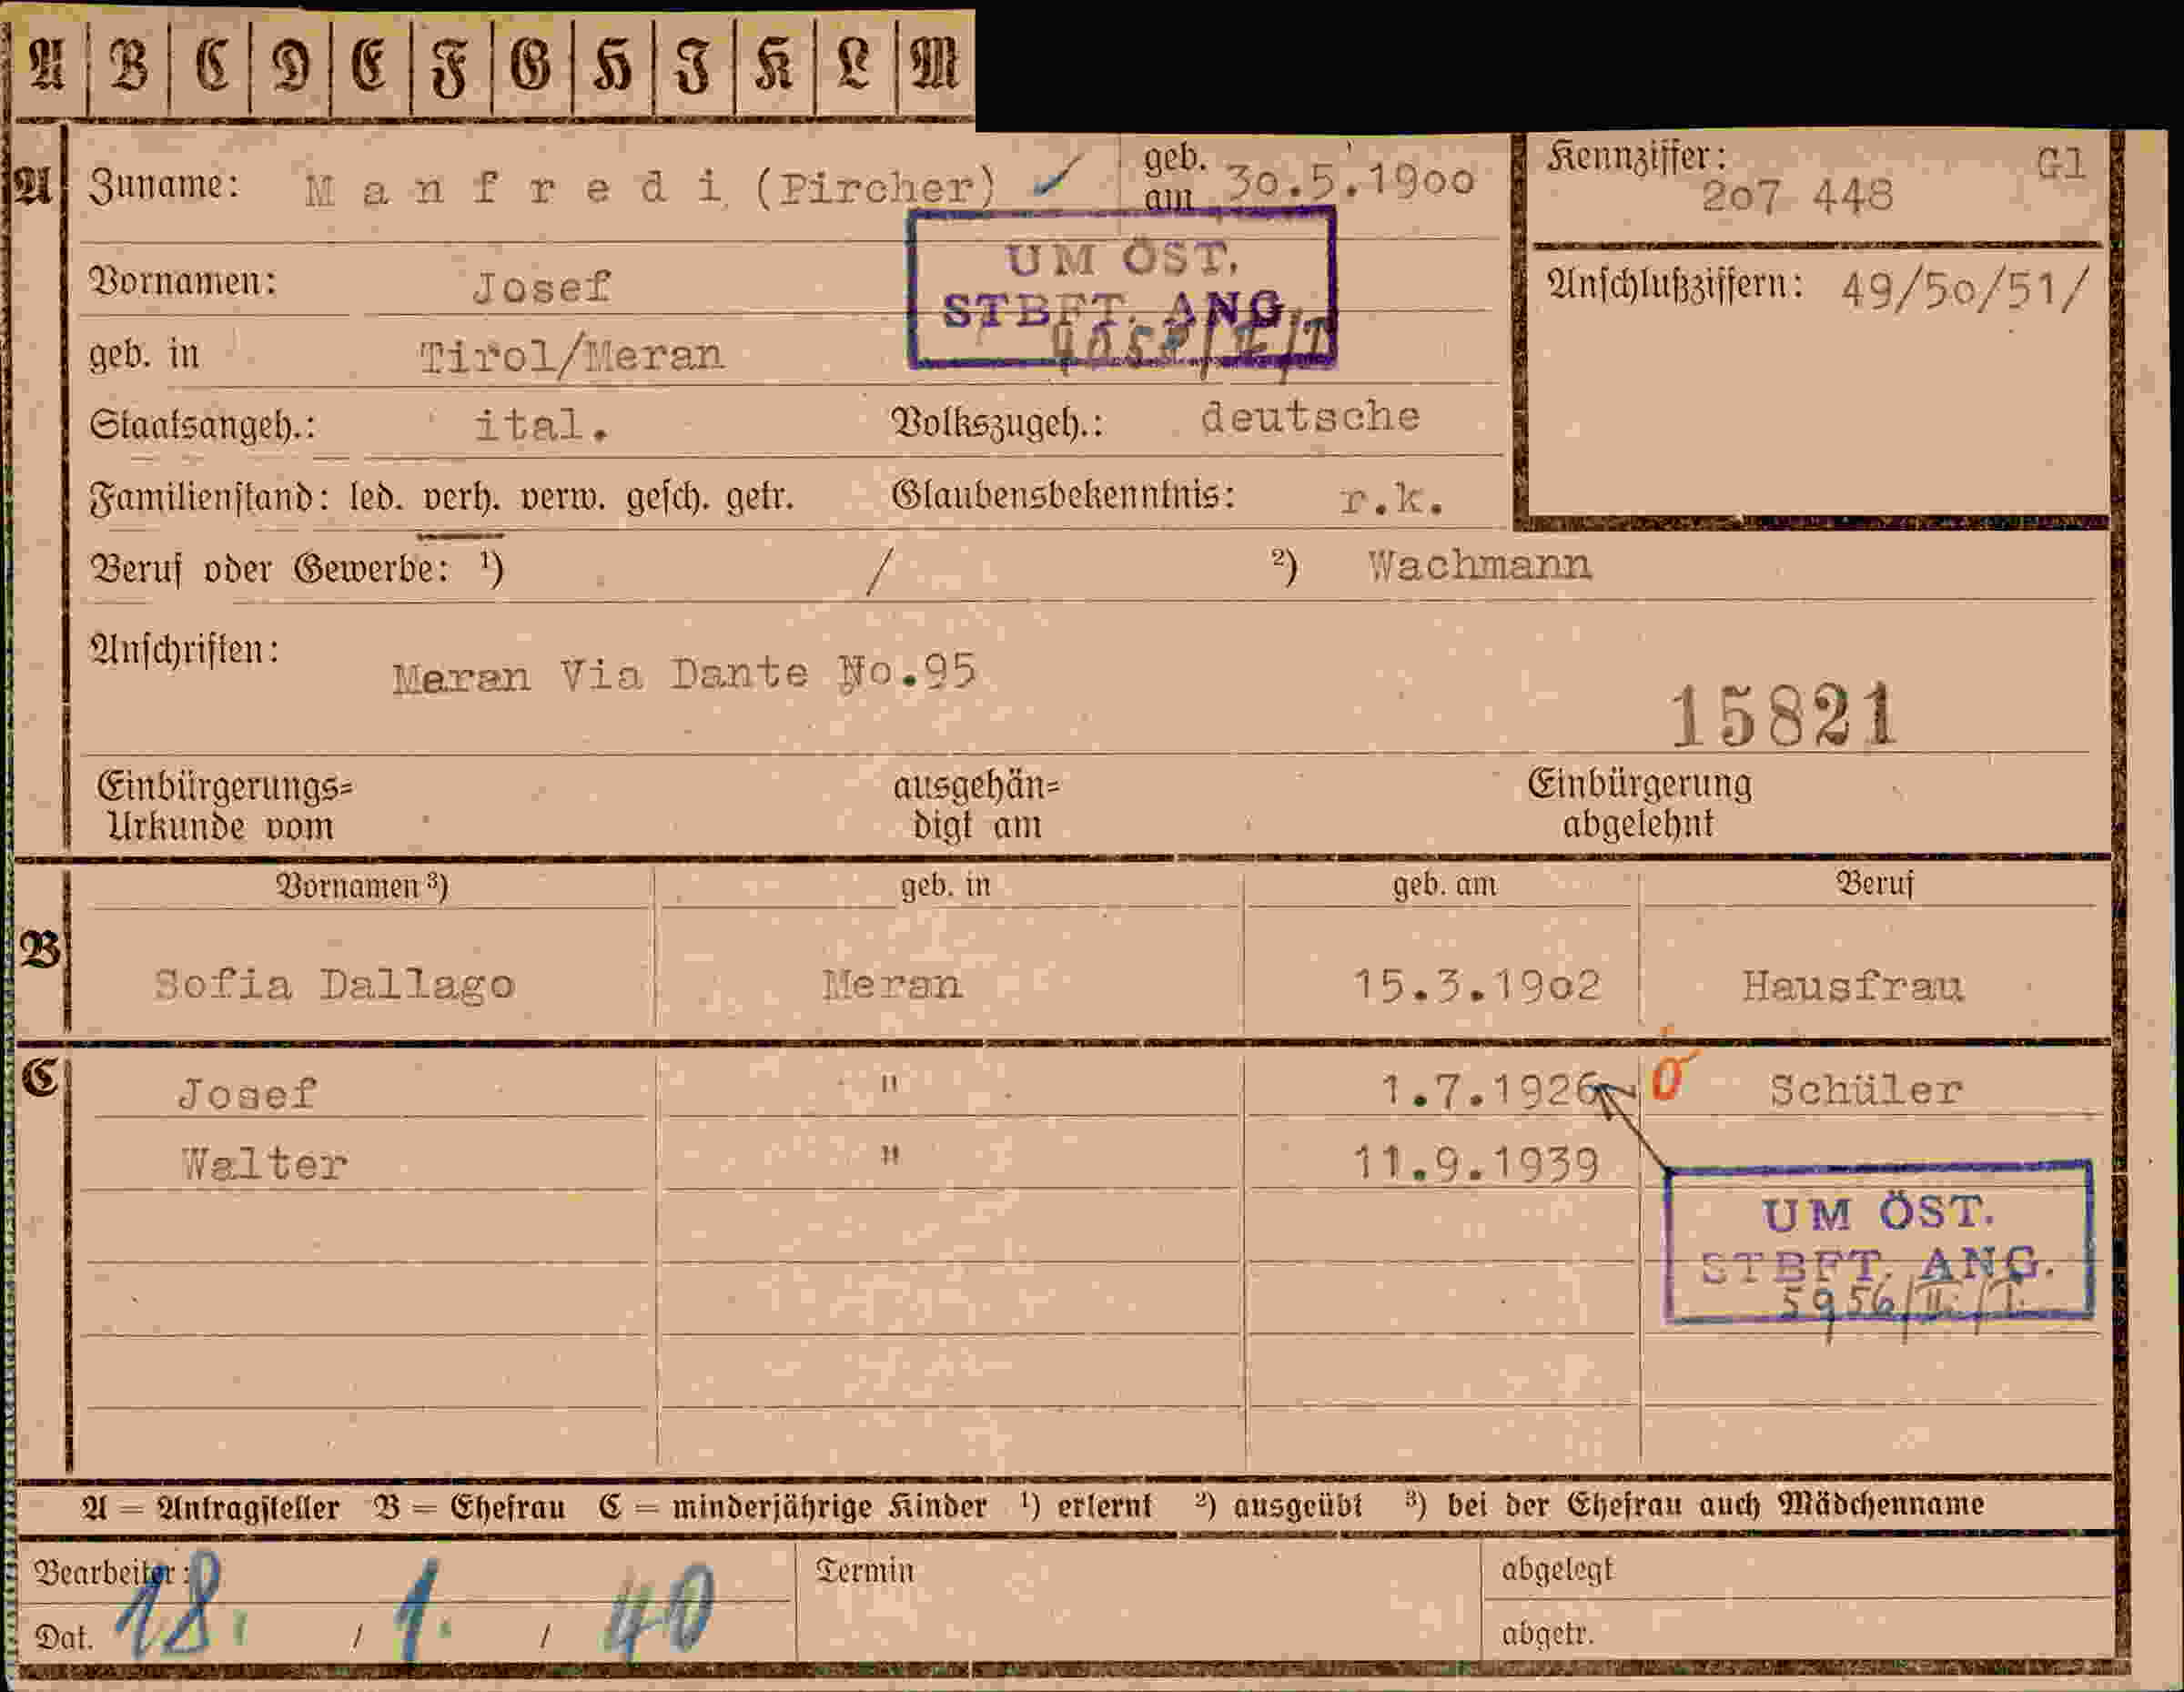 A B C D E F G H I K L M
A Zuname: Manfredi (Pircher) ✓ geb. am 30.5.1900
Kennziffer: 207 448 Gl
UM ÖST.
STBFT. ANG.
Vornamen: Josef
Anschlußziffern: 49/50/51/
geb. in Tirol/Meran
Staatsangeh.: ital. Volkszugeh.: deutsche
Familienstand: led. verh. verw. gesch. getr. Glaubensbekenntnis: r.k.
Beruf oder Gewerbe: ¹) / ²) Wachmann
Anschriften: Meran Via Dante No.95
15821
Einbürgerungs=
Urkunde vom
ausgehän=
digt am
Einbürgerung
abgelehnt
Vornamen ³) geb. in geb. am Beruf
B Sofia Dallago Meran 15.3.1902 Hausfrau
C Josef " 1.7.1926 Schüler
Walter " 11.9.1939
UM ÖST.
STBFT. ANG.
5956/II./I.
A = Antragsteller B = Ehefrau C = minderjährige Kinder ¹) erlernt ²) ausgeübt ³) bei der Ehefrau auch Mädchenname
Bearbeiter: Termin abgelegt
Dat. 18. / 1. / 40 abgetr.